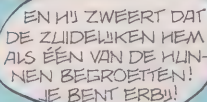 EN HIJ ZWEERT DAT
DE ZUIDELIJKEN HEM
ALS ÉÉN VAN DE HUN-
NEN BEGROETTEN!
JE BENT ERBIJ!